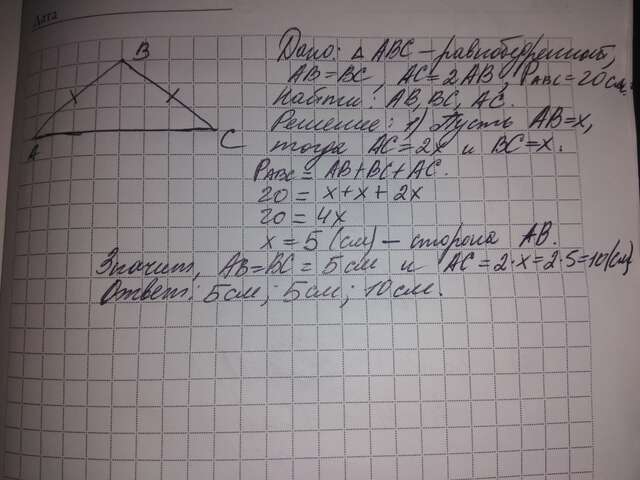 Дата
B
A
C
Дано: △ ABC – равнобедренный,
AB = BC, AC = 2AB, PABC = 20 см.
Найти: AB, BC, AC.
Решение: 1) Пусть AB = x,
тогда AC = 2x и BC = x.
PABC = AB + BC + AC.
20 = x + x + 2x
20 = 4x
x = 5 (см) – сторона AB.
Значит, AB = BC = 5 см и AC = 2·x = 2·5 = 10 (см)
Ответ: 5 см; 5 см; 10 см.